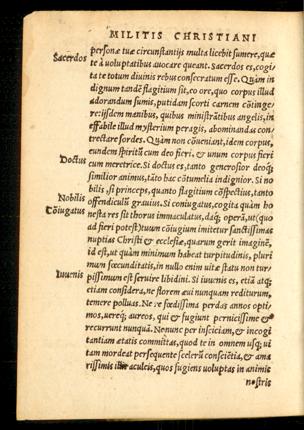 MILITIS CHRISTIANI
personæ tuæ circunstantijs multa licebit sumere, quæ
Sacerdos
te à uoluptatibus auocare queant. Sacerdos es, cogi
ta te totum diuinis rebus consecratum esse. Quàm in
dignum tandē flagitium sit, eo ore, quo corpus illud
adorandum sumis, putidam scorti carnem cōtinge
re: ijsdem manibus, quibus ministrātibus angelis, in
effabile illud mysterium peragis, abominandas con
trectare sordes. Quàm non cōueniant, idem corpus,
eundem spiritū cum deo fieri, & unum corpus fieri
Doctus
cum meretrice. Si doctus es, tanto generosior deoq́;
similior animus, tāto hac cōtumelia indignior. Si no
Nobilis
bilis, si princeps, quanto flagitium cōspectius, tanto
Cōiugatus
offendiculū grauius. Si coniugatus, cogita quàm ho
nesta res sit thorus immaculatus, daq́; operā, ut (quo
ad fieri potest) tuum cōiugium imitetur sanctissimas
nuptias Christi & ecclesiæ, quarum gerit imaginē,
id est, ut quàm minimum habeat turpitudinis, pluri
mum fœcunditatis, in nullo enim uitæ statu non tur-
Iuuenis
pissimum est seruire libidini. Si iuuenis es, etiā atq́;
etiam considera, ne florem æui nunquam rediturum,
temere polluas. Ne rè fœdissima perdas annos opti
mos, uereq́; aureos, qui & fugiunt pernicissime &
recurrunt nunquā. Ne nunc per insciciam, & incogi
tantiam ætatis committas, quod te in omnem usq́; ui
tam mordeat persequente scelerū conscientia, & ama
rissimis illis aculeis, quos fugiens uoluptas in animis
nostris